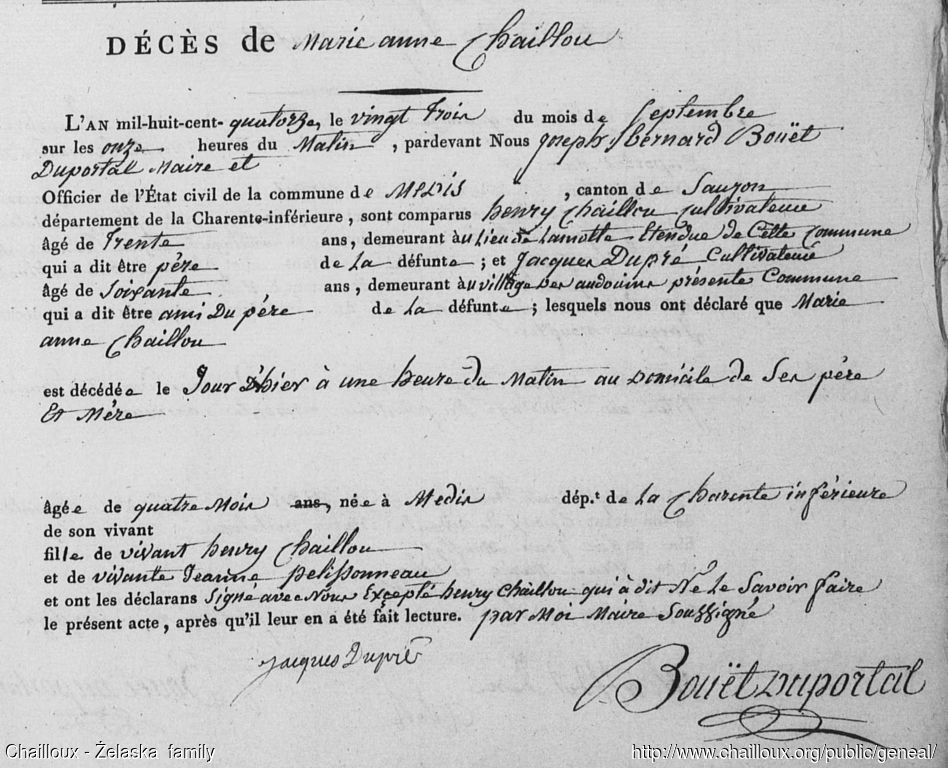 DÉCÈS de Marie anne Chaillou
L'AN mil-huit-cent- quatorze, le vingt trois du mois de Septembre
sur les onze heures du Matin, pardevant Nous joseph, bernard Bouët
Duportal Maire et
Officier de l'État civil de la commune de MEDIS, canton de Saujon
département de la Charente-inférieure, sont comparus henry Chaillou Cultivateur
âgé de Trente ans, demeurant au Lieu de Lamotte Etendue de Cette Commune
qui a dit être père de La défunte; et Jacques Dupré Cultivateur
âgé de Soixante ans, demeurant au village des audouins présente Commune
qui a dit être ami Du père de La défunte; lesquels nous ont déclaré que Marie
anne Chaillou
est décédée le Jour D'hier à une heure du Matin au Domicile de Ses père
Et Mère
âgée de quatre Mois ans, née à Medis dép.t de La Charente inférieure
de son vivant
fille de vivant henry Chaillou
et de vivante Jeanne pelissonneau
et ont les déclarans Signé avec Nous Excepté henry Chaillou qui à dit Ne Le Savoir faire
le présent acte, après qu'il leur en a été fait lecture. par Moi Maire Soussigné
Jacques Dupré
Bouët Duportal
Chailloux - Želaska family
http://www.chailloux.org/public/geneal/